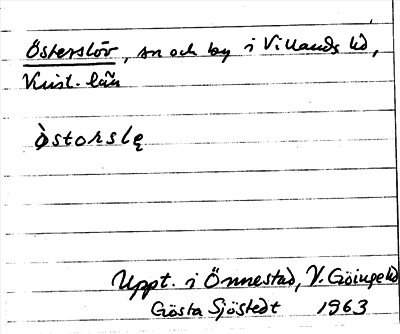 Österslöv, sn och by i Villands hd,
Krist. län
òstorslę
Uppt. i Önnestad, V. Göinge hd
Gösta Sjöstedt 1963